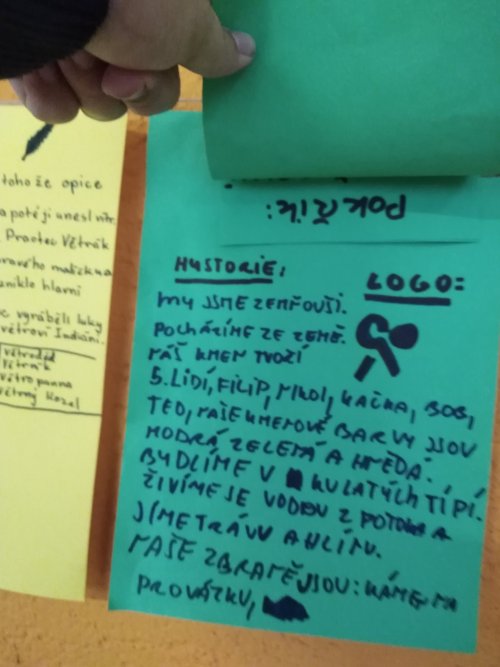 toho že opice
a potéji unesl
Praotec Větrák
niklo hlavní
vyráběli luky
větroví Indiáni.
Větroděd
Větrák
Větropanna
Větrný Kozel
POKŘIK:
HYSTORIE:
LOGO:
MY JSME ZEMŇOUŠI.
POCHÁZÍME ZE ZEMĚ.
NÁŠ KMEN TVOŘÍ
5. LIDÍ, FILIP, MIKOL, KAČKA, BOB,
TEO, NAŠE KMENOVÉ BARVY JSOU
MODRÁ ZELENÁ A HNĚDÁ.
BYDLÍME V KULATÝCH TÍPÍ.
ŽIVÍME SE VODOU Z POTOKA A
JÍME TRÁVU A HLÍNU.
NAŠE ZBRANĚ JSOU: KÁMEN NA
PROVÁZKU,